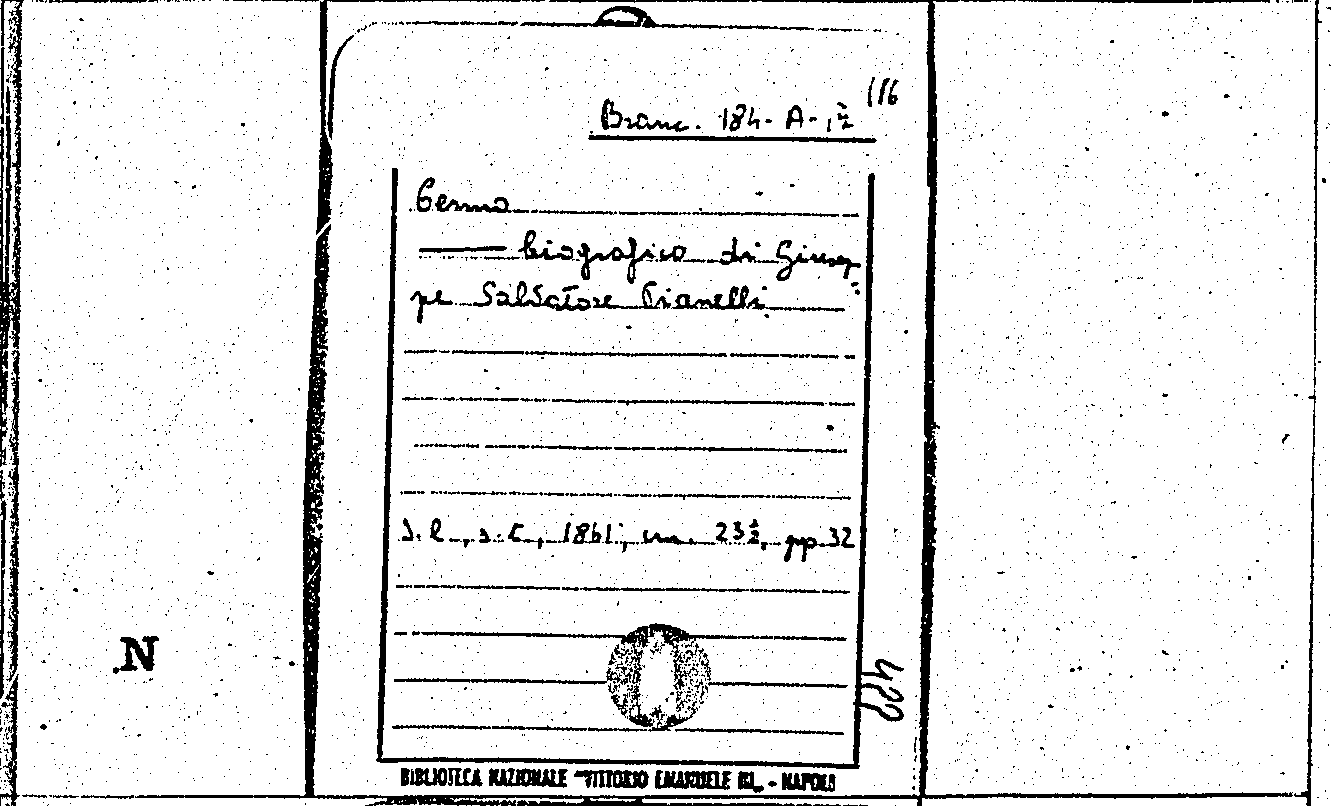 116
Branc. 184-A-1²
Cenno
——— biografico di Giusep
pe Salvatore Pianelli
s.l., s.t., 1861; cm. 23½, pp. 32
N
422
BIBLIOTECA NAZIONALE "VITTORIO EMANUELE III" - NAPOLI